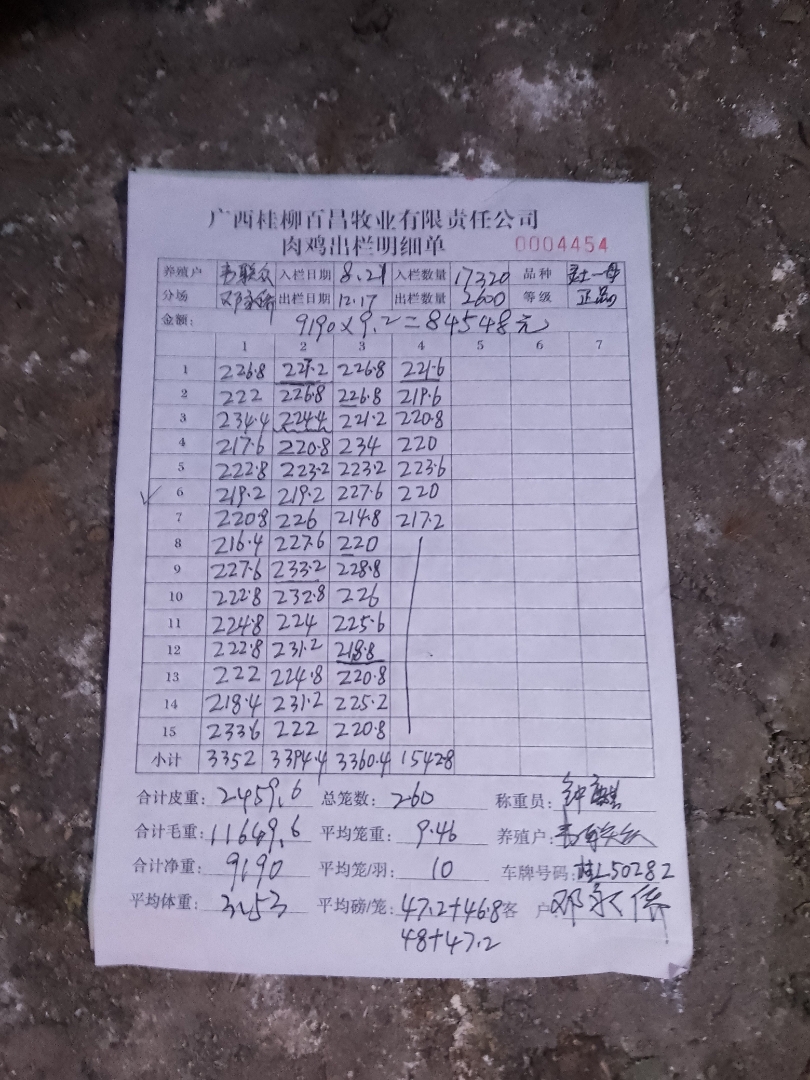 广西桂柳百昌牧业有限责任公司
肉鸡出栏明细单 0004454
养殖户 韦联众 入栏日期 8.21 入栏数量 17320 品种
分场 出栏日期 12.17 出栏数量 2600 等级 正品
金额: 9190×9.2=84548元
1 2 3 4 5 6 7
1 226.8 227.2 226.8 221.6
2 222 226.8 226.8 219.6
3 234.4 224.4 221.2 220.8
4 217.6 220.8 234 220
5 222.8 223.2 223.2 223.6
6 219.2 219.2 227.6 220
7 220.8 226 214.8 217.2
8 216.4 227.6 220
9 227.6 233.2 228.8
10 222.8 232.8 226
11 224.8 224 225.6
12 222.8 231.2 218.8
13 222 224.8 220.8
14 218.4 231.2 225.2
15 233.6 222 220.8
小计 3352 3394.4 3360.4 1542.8
合计皮重: 2459.6 总笼数: 260 称重员:
合计毛重: 11649.6 平均笼重: 9.46 养殖户:
合计净重: 9190 平均笼/羽: 10 车牌号码: 桂L50282
平均体重: 3.53 平均磅/笼: 47.2+46.8 客 户:
48+47.2